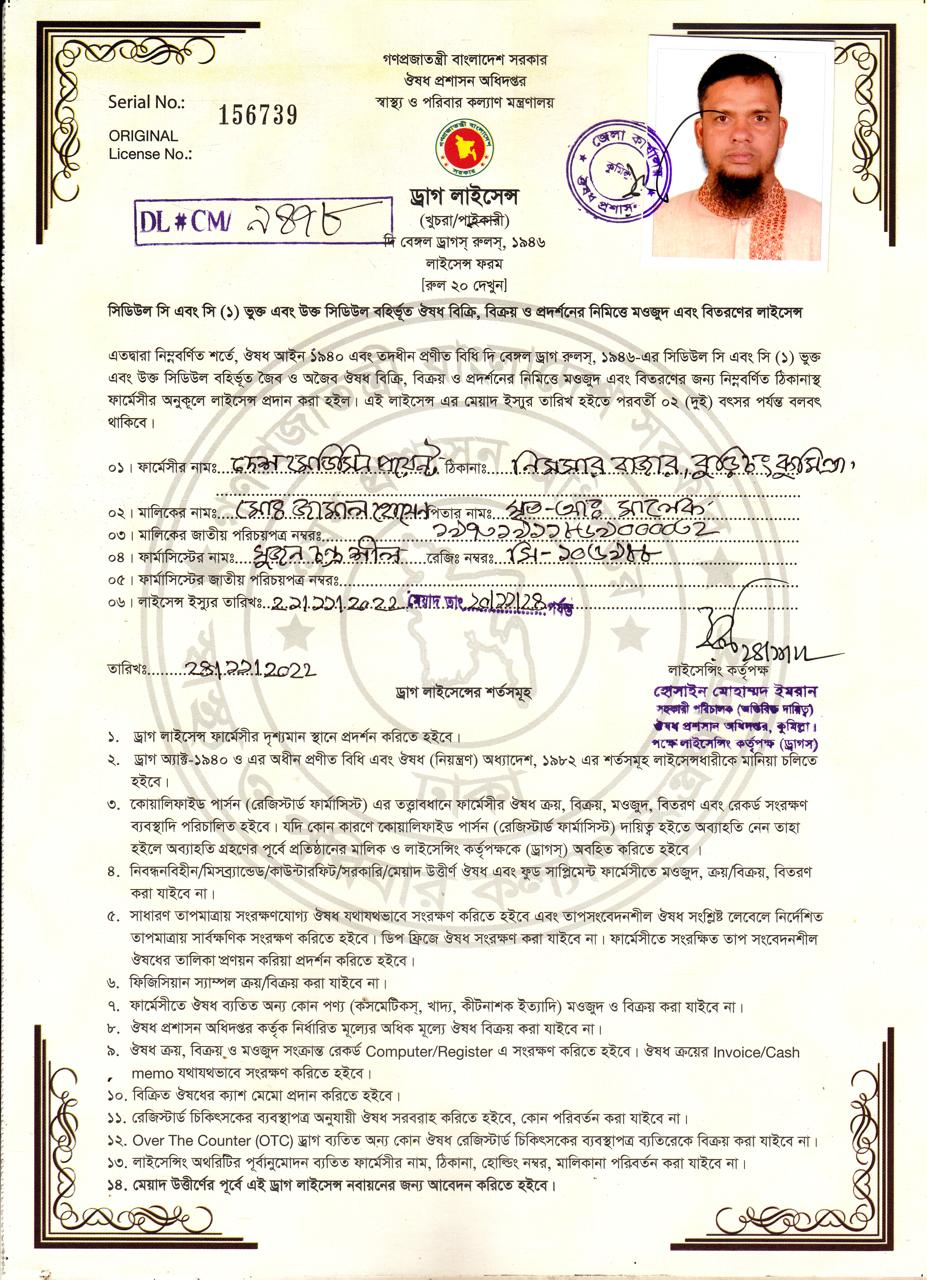 গণপ্রজাতন্ত্রী বাংলাদেশ সরকার
ঔষধ প্রশাসন অধিদপ্তর
স্বাস্থ্য ও পরিবার কল্যাণ মন্ত্রণালয়
Serial No.: 156739
ORIGINAL
License No.:
DL # CM/ ২৪৭৮
গণপ্রজাতন্ত্রী বাংলাদেশ
সরকার
জেলা কার্যালয়
ঔষধ প্রশাসন
ড্রাগ লাইসেন্স
(খুচরা/পাইকারী)
দি বেঙ্গল ড্রাগস্ রুলস্, ১৯৪৬
লাইসেন্স ফরম
[রুল ২০ দেখুন]
সিডিউল সি এবং সি (১) ভুক্ত এবং উক্ত সিডিউল বহির্ভূত ঔষধ বিক্রি, বিক্রয় ও প্রদর্শনের নিমিত্তে মওজুদ এবং বিতরণের লাইসেন্স
এতদ্বারা নিম্নবর্ণিত শর্তে, ঔষধ আইন ১৯৪০ এবং তদধীন প্রণীত বিধি দি বেঙ্গল ড্রাগ রুলস্, ১৯৪৬-এর সিডিউল সি এবং সি (১) ভুক্ত
এবং উক্ত সিডিউল বহির্ভূত জৈব ও অজৈব ঔষধ বিক্রি, বিক্রয় ও প্রদর্শনের নিমিত্তে মওজুদ এবং বিতরণের জন্য নিম্নবর্ণিত ঠিকানাস্থ
ফার্মেসীর অনুকূলে লাইসেন্স প্রদান করা হইল। এই লাইসেন্স এর মেয়াদ ইস্যুর তারিখ হইতে পরবর্তী ০২ (দুই) বৎসর পর্যন্ত বলবৎ
থাকিবে।
০১। ফার্মেসীর নামঃ মেডিসিন পয়েন্ট ঠিকানাঃ নিমসার বাজার, বুড়িচং কুমিল্লা।
০২। মালিকের নামঃ মোঃ জামাল হোসেন পিতার নাম: মৃত-আঃ মালেক
০৩। মালিকের জাতীয় পরিচয়পত্র নম্বরঃ
০৪। ফার্মাসিস্টের নামঃ সুজন চন্দ্র শীল রেজিঃ নম্বরঃ সি-১০৫২৪৮
০৫। ফার্মাসিস্টের জাতীয় পরিচয়পত্র নম্বরঃ
০৬। লাইসেন্স ইস্যুর তারিখঃ ২১.১১.২০২২ মেয়াদ তাং ২০/১১/২৪ পর্যন্ত
তারিখঃ ২৪/১১/২০২২
লাইসেন্সিং কর্তৃপক্ষ
হোসাইন মোহাম্মদ ইমরান
সহকারী পরিচালক (অতিরিক্ত দায়িত্ব)
ঔষধ প্রশাসন অধিদপ্তর, কুমিল্লা।
পক্ষে লাইসেন্সিং কর্তৃপক্ষ (ড্রাগস)
ড্রাগ লাইসেন্সের শর্তসমূহ
১. ড্রাগ লাইসেন্স ফার্মেসীর দৃশ্যমান স্থানে প্রদর্শন করিতে হইবে।
২. ড্রাগ অ্যাক্ট-১৯৪০ ও এর অধীন প্রণীত বিধি এবং ঔষধ (নিয়ন্ত্রণ) অধ্যাদেশ, ১৯৮২ এর শর্তসমূহ লাইসেন্সধারীকে মানিয়া চলিতে
হইবে।
৩. কোয়ালিফাইড পার্সন (রেজিস্টার্ড ফার্মাসিস্ট) এর তত্ত্বাবধানে ফার্মেসীর ঔষধ ক্রয়, বিক্রয়, মওজুদ, বিতরণ এবং রেকর্ড সংরক্ষণ
ব্যবস্থাদি পরিচালিত হইবে। যদি কোন কারণে কোয়ালিফাইড পার্সন (রেজিস্টার্ড ফার্মাসিস্ট) দায়িত্ব হইতে অব্যাহতি নেন তাহা
হইলে অব্যাহতি গ্রহণের পূর্বে প্রতিষ্ঠানের মালিক ও লাইসেন্সিং কর্তৃপক্ষকে (ড্রাগস্) অবহিত করিতে হইবে ।
৪. নিবন্ধনবিহীন/মিসব্র্যান্ডেড/কাউন্টারফিট/সরকারি/মেয়াদ উত্তীর্ণ ঔষধ এবং ফুড সাপ্লিমেন্ট ফার্মেসীতে মওজুদ, ক্রয়/বিক্রয়, বিতরণ
করা যাইবে না।
৫. সাধারণ তাপমাত্রায় সংরক্ষণযোগ্য ঔষধ যথাযথভাবে সংরক্ষণ করিতে হইবে এবং তাপসংবেদনশীল ঔষধ সংশ্লিষ্ট লেবেলে নির্দেশিত
তাপমাত্রায় সার্বক্ষণিক সংরক্ষণ করিতে হইবে। ডিপ ফ্রিজে ঔষধ সংরক্ষণ করা যাইবে না। ফার্মেসীতে সংরক্ষিত তাপ সংবেদনশীল
ঔষধের তালিকা প্রণয়ন করিয়া প্রদর্শন করিতে হইবে।
৬. ফিজিসিয়ান স্যাম্পল ক্রয়/বিক্রয় করা যাইবে না।
৭. ফার্মেসীতে ঔষধ ব্যতিত অন্য কোন পণ্য (কসমেটিকস্, খাদ্য, কীটনাশক ইত্যাদি) মওজুদ ও বিক্রয় করা যাইবে না।
৮. ঔষধ প্রশাসন অধিদপ্তর কর্তৃক নির্ধারিত মূল্যের অধিক মূল্যে ঔষধ বিক্রয় করা যাইবে না।
৯. ঔষধ ক্রয়, বিক্রয় ও মওজুদ সংক্রান্ত রেকর্ড Computer/Register এ সংরক্ষণ করিতে হইবে। ঔষধ ক্রয়ের Invoice/Cash
memo যথাযথভাবে সংরক্ষণ করিতে হইবে।
১০. বিক্রিত ঔষধের ক্যাশ মেমো প্রদান করিতে হইবে।
১১. রেজিস্টার্ড চিকিৎসকের ব্যবস্থাপত্র অনুযায়ী ঔষধ সরবরাহ করিতে হইবে, কোন পরিবর্তন করা যাইবে না।
১২. Over The Counter (OTC) ড্রাগ ব্যতিত অন্য কোন ঔষধ রেজিস্টার্ড চিকিৎসকের ব্যবস্থাপত্র ব্যতিরেকে বিক্রয় করা যাইবে না।
১৩. লাইসেন্সিং অথরিটির পূর্বানুমোদন ব্যতিত ফার্মেসীর নাম, ঠিকানা, হোল্ডিং নম্বর, মালিকানা পরিবর্তন করা যাইবে না।
১৪. মেয়াদ উত্তীর্ণের পূর্বে এই ড্রাগ লাইসেন্স নবায়নের জন্য আবেদন করিতে হইবে।